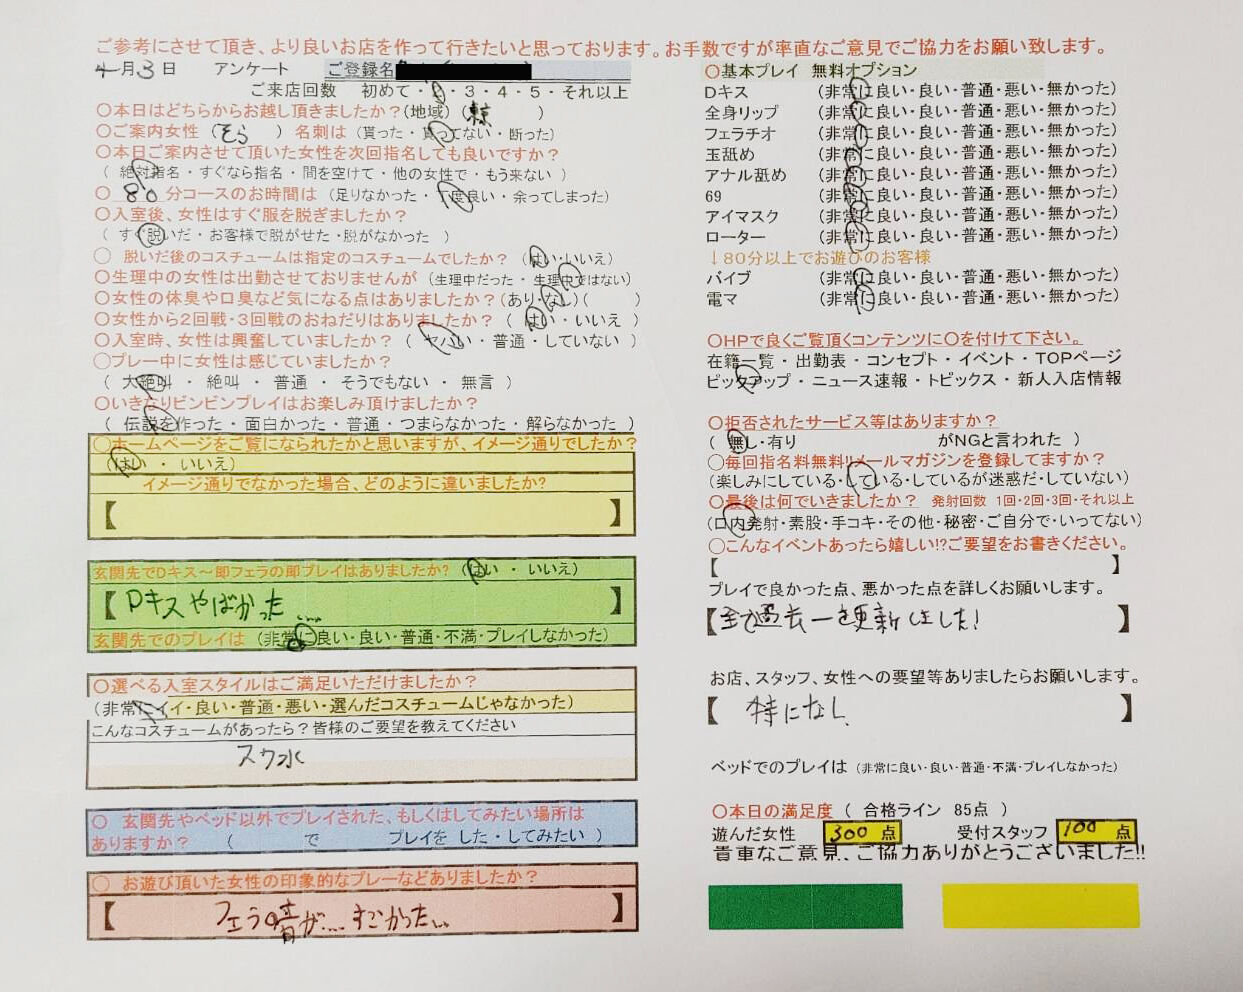 ご参考にさせて頂き、より良いお店を作って行きたいと思っております。お手数ですが率直なご意見でご協力をお願い致します。
4月3日 アンケート ご登録名
ご来店回数 初めて・2・3・4・5・それ以上
〇本日はどちらからお越し頂きましたか?(地域)(東京 )
〇ご案内女性(そら )名刺は(貰った・貰ってない・断った)
〇本日ご案内させて頂いた女性を次回指名しても良いですか?
(絶対指名・すぐなら指名・間を空けて・他の女性で・もう来ない)
〇 80分コースのお時間は(足りなかった・丁度良い・余ってしまった)
〇入室後、女性はすぐ服を脱ぎましたか?
(すぐ脱いだ・お客様で脱がせた・脱がなかった )
〇 脱いだ後のコスチュームは指定のコスチュームでしたか?(はい・いいえ)
〇生理中の女性は出勤させておりませんが(生理中だった・生理中ではない)
〇女性の体臭や口臭など気になる点はありましたか?(あり・なし)( )
〇女性から2回戦・3回戦のおねだりはありましたか?( はい・いいえ )
〇入室時、女性は興奮していましたか?( ヤバい・普通・していない )
〇プレー中に女性は感じていましたか?
( 大絶叫 ・ 絶叫 ・ 普通 ・ そうでもない ・ 無言 )
〇いきなりビンビンプレイはお楽しみ頂けましたか?
( 伝説を作った・面白かった・普通・つまらなかった・解らなかった )
〇ホームページをご覧になられたかと思いますが、イメージ通りでしたか?
(はい ・ いいえ)
イメージ通りでなかった場合、どのように違いましたか?
【 】
玄関先でDキス~即フェラの即プレイはありましたか?(はい ・ いいえ)
【Dキスやばかった…. 】
玄関先でのプレイは (非常に良い・良い・普通・不満・プレイしなかった)
〇選べる入室スタイルはご満足いただけましたか?
(非常にイイ・良い・普通・悪い・選んだコスチュームじゃなかった)
こんなコスチュームがあったら?皆様のご要望を教えてください
スク水
〇 玄関先やベッド以外でプレイされた、もしくはしてみたい場所は
ありますか? ( で プレイを した・してみたい )
〇 お遊び頂いた女性の印象的なプレーなどありましたか?
【 フェラの音が....すごかった... 】
〇基本プレイ 無料オプション
Dキス (非常に良い・良い・普通・悪い・無かった)
全身リップ (非常に良い・良い・普通・悪い・無かった)
フェラチオ (非常に良い・良い・普通・悪い・無かった)
玉舐め (非常に良い・良い・普通・悪い・無かった)
アナル舐め (非常に良い・良い・普通・悪い・無かった)
69 (非常に良い・良い・普通・悪い・無かった)
アイマスク (非常に良い・良い・普通・悪い・無かった)
ローター (非常に良い・良い・普通・悪い・無かった)
↓80分以上でお遊びのお客様
バイブ (非常に良い・良い・普通・悪い・無かった)
電マ (非常に良い・良い・普通・悪い・無かった)
〇HPで良くご覧頂くコンテンツに〇を付けて下さい。
在籍一覧 ・ 出勤表 ・ コンセプト ・ イベント ・ TOPページ
ピックアップ ・ ニュース速報 ・ トピックス ・ 新人入店情報
〇拒否されたサービス等はありますか?
( 無し・有り がNGと言われた )
〇毎回指名料無料!!メールマガジンを登録してますか?
(楽しみにしている・している・しているが迷惑だ・していない)
〇最後は何でいきましたか? 発射回数 1回・2回・3回・それ以上
(口内発射・素股・手コキ・その他・秘密・ご自分で・いってない)
〇こんなイベントあったら嬉しい!?ご要望をお書きください。
【 】
プレイで良かった点、悪かった点を詳しくお願いします。
【全て過去一を更新しました! 】
お店、スタッフ、女性への要望等ありましたらお願いします。
【 特になし 】
ベッドでのプレイは (非常に良い・良い・普通・不満・プレイしなかった)
〇本日の満足度 ( 合格ライン 85点 )
遊んだ女性 300 点 受付スタッフ 100 点
貴重なご意見、ご協力ありがとうございました!!